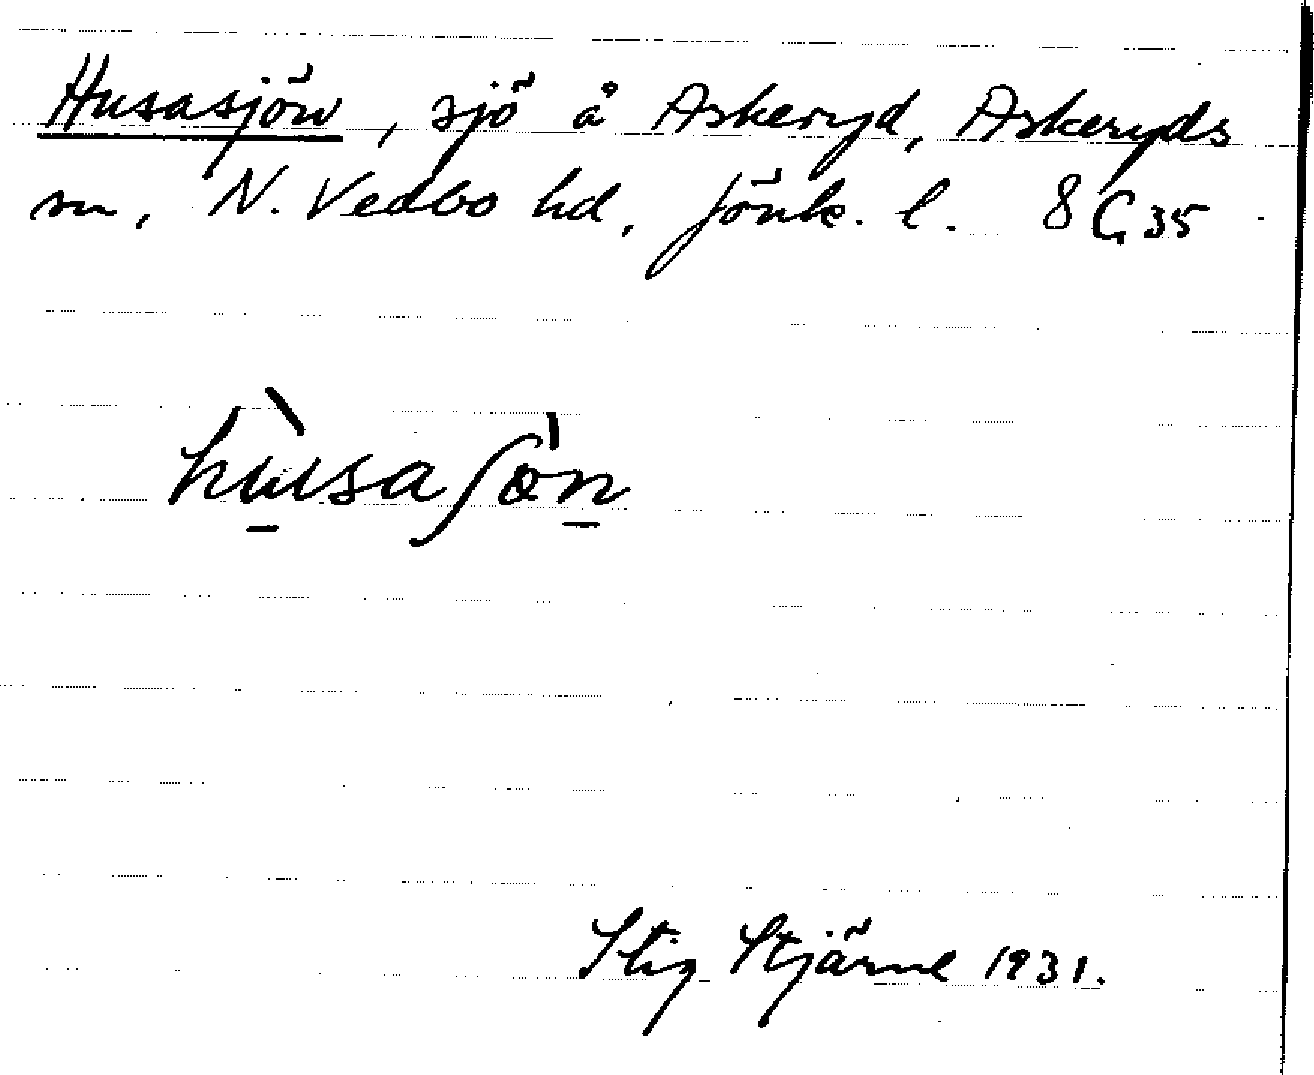 Husasjön, sjö å Askeryd, Askeryds
sn, N. Vedbo hd, Jönk. l. 8 G 35
hùsaʃö̀n
Stig Stjärne 1931.